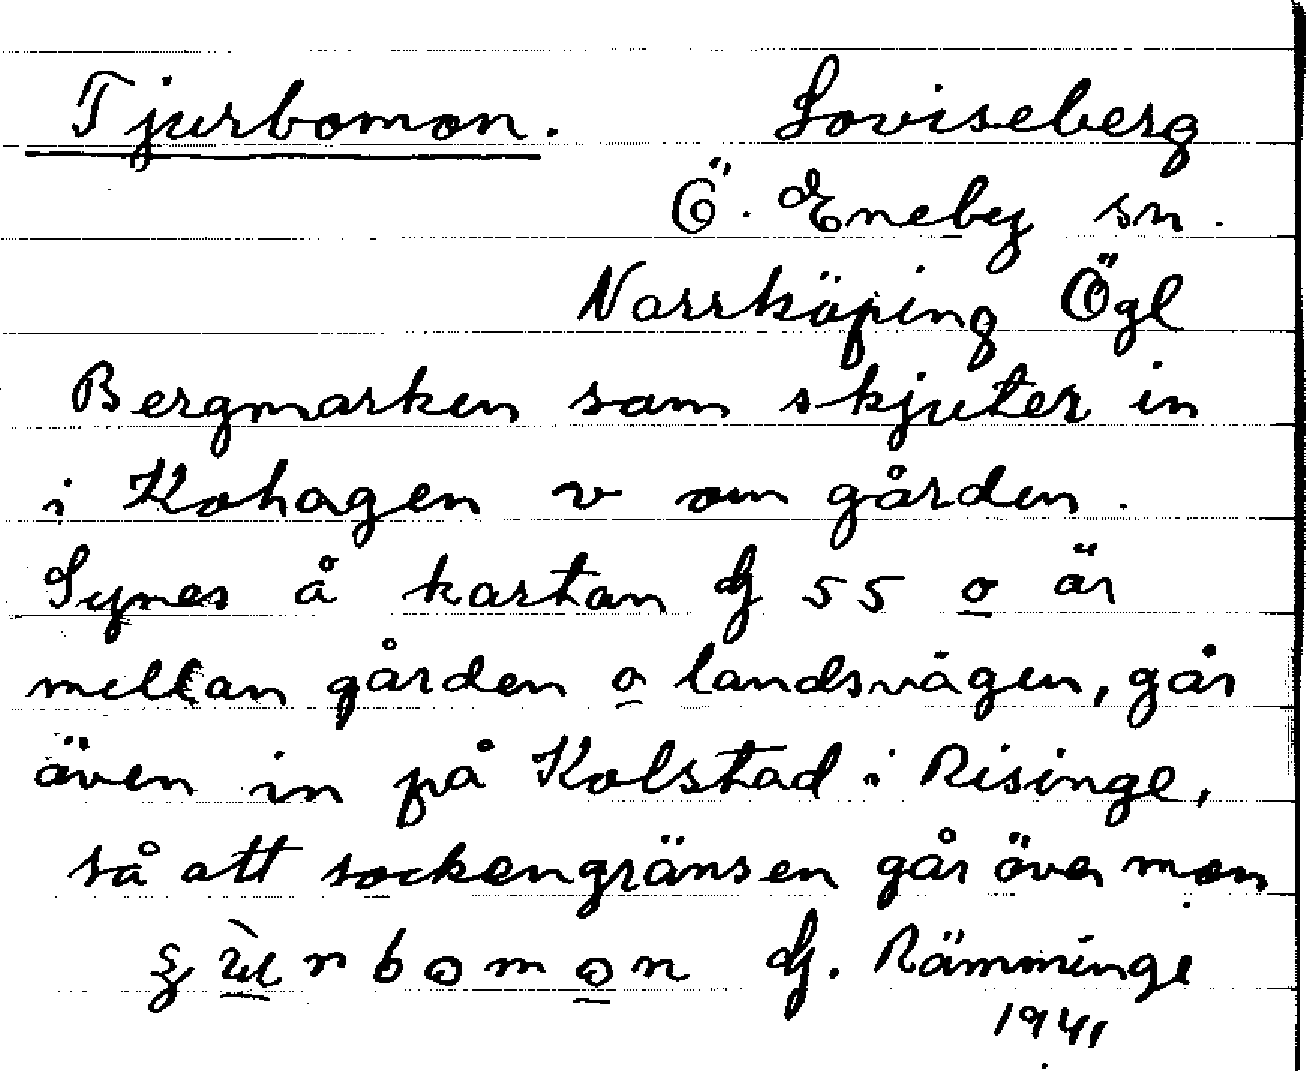 Tjurbomon. Loviseberg
Ö. Eneby sn.
Norrköping Ögl
Bergmarken som skjuter in
i Kohagen v om gården.
Synes å kartan 55 o är
mellan gården o landsvägen, går
även in på Kolstad i Risinge,
så att sockengränsen går över mon
Rämminge
1941